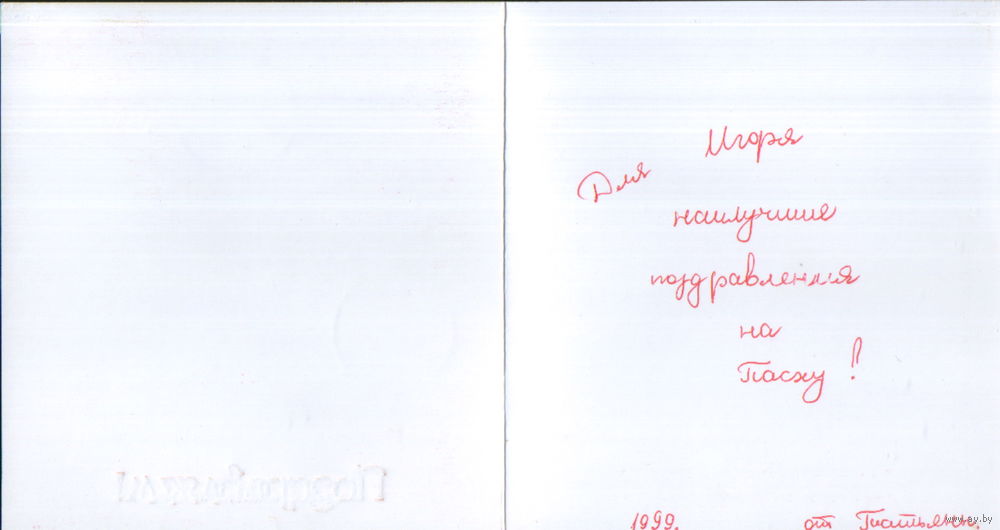 Для Игоря
наилучшие
поздравления
на
Пасху!
1999. от Татьяны.
www.ay.by
Поздравляем!